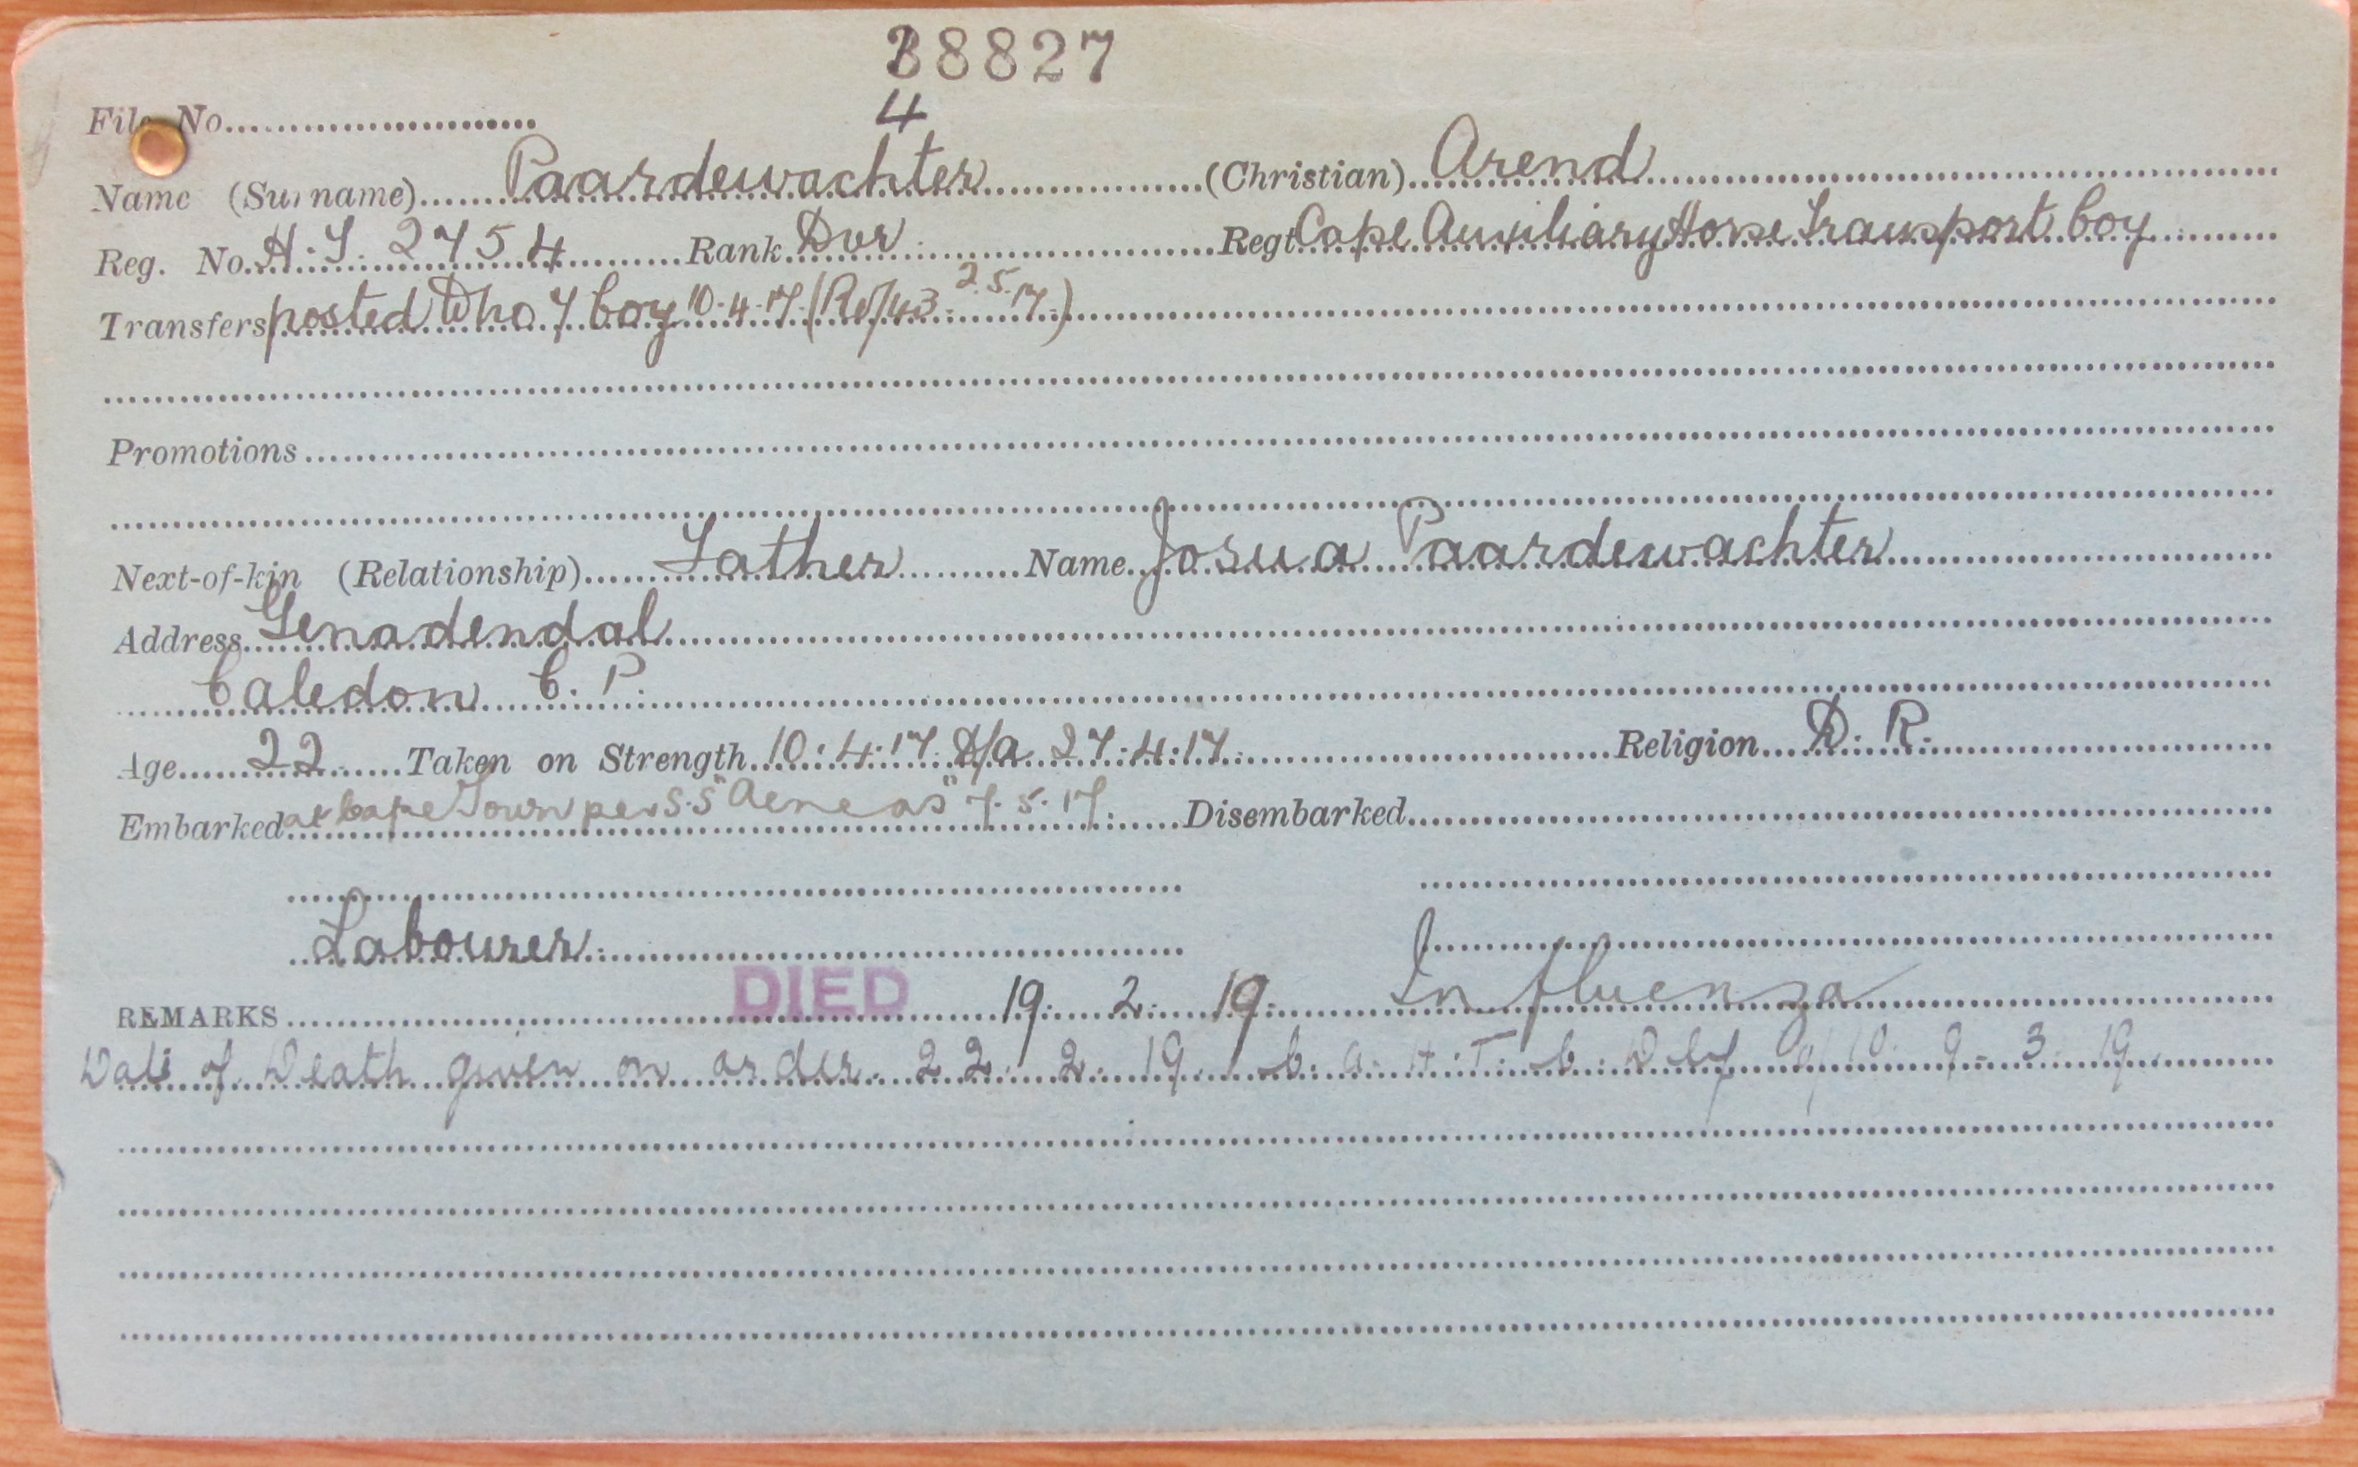 38827
4
File No.
Name (Surname) Paardewachter (Christian) Arend
Reg. No. H.T. 2754 Rank Dvr. Regt Cape Auxiliary Horse Transport Coy
Transfers posted 7 Coy 10.4.17 2.5.17)
Promotions
Next-of-kin (Relationship) Father Name Josua Paardewachter
Address Genadendal
Caledon C. P.
Age 22 Taken on Strength 10:4:17. D/a 27:4:17. Religion D. R.
Embarked at Cape Town per S.S "Aeneas" 7.5.17. Disembarked
Labourer.
REMARKS DIED 19. 2. 19. Influenza
Date of Death given on order 22. 2. 19. C. A. H. T. C. 9. 3. 19.